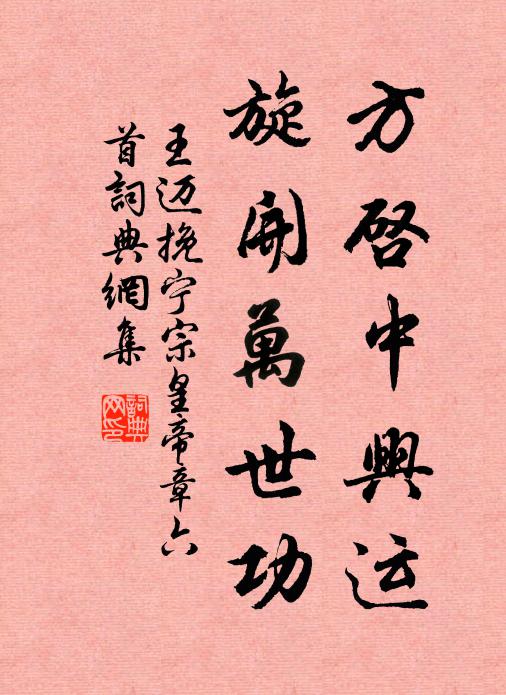 方啓中興运
旋開萬世功
王迈挽宁宗皇帝章六
首詞典網集
詞典网印